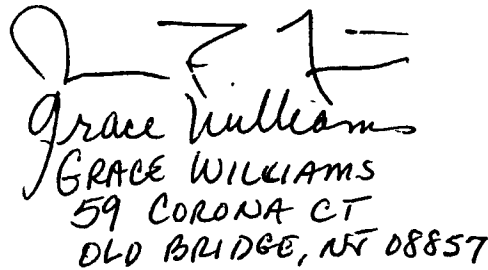 Grace Williams
GRACE WILLIAMS
59 CORONA CT
OLD BRIDGE, NJ 08857